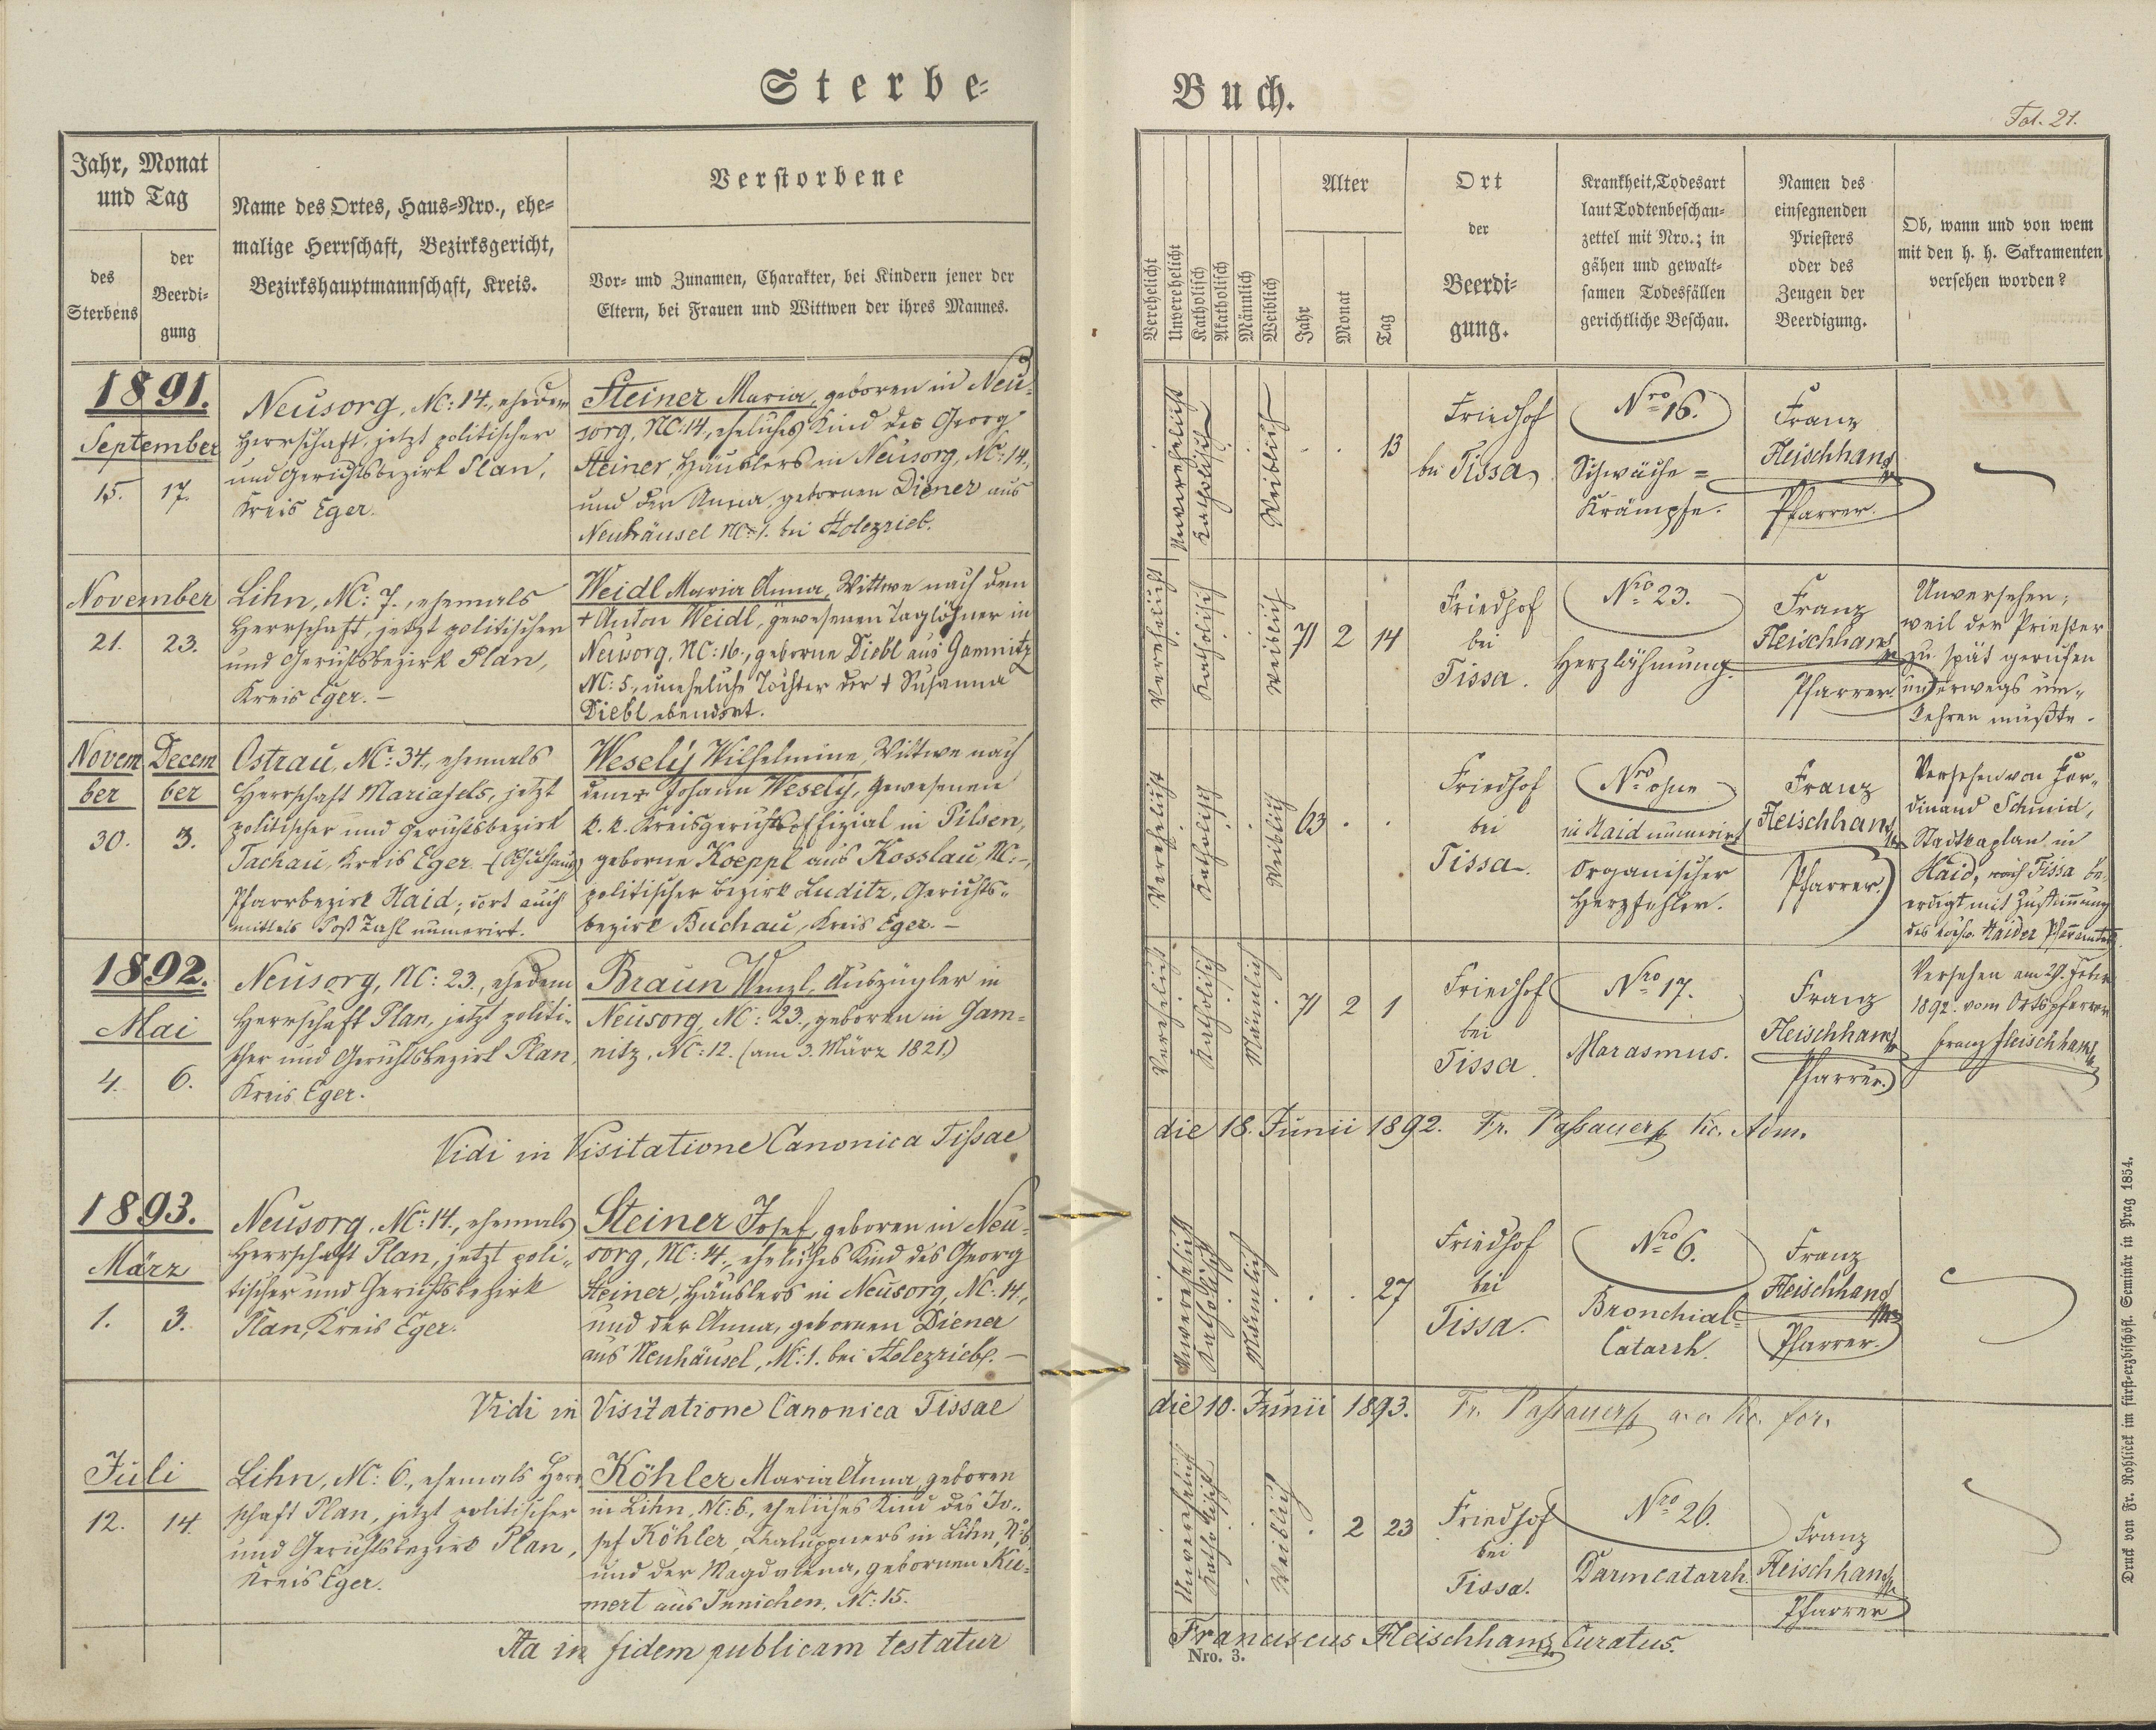 Sterbe-
Jahr, Monat
und Tag
des
Sterbens
der
Beerdi-
gung
Name des Ortes, Haus-Nro., ehe-
malige Herrschaft, Bezirksgericht,
Bezirkshauptmannschaft, Kreis.
Verstorbene
Vor- und Zunamen, Charakter, bei Kindern jener der
Eltern, bei Frauen und Wittwen der ihres Mannes.
1891.
September
15. 17.
Neusorg, NC: 14., ehedem
Herrschaft, jetzt politischer
und Gerichtsbezirk Plan,
Kreis Eger.
Steiner Maria, geboren in Neu-
sorg, NC: 14, eheliches Kind des Georg
Steiner, Häuslers in Neusorg, NC: 14,
und der Anna, gebornen Diener aus
Neuhäusel NC: 1. bei Holezrieb.
November
21. 23.
Lihn, NC: 7., ehemals
Herrschaft, jetzt politischer
und Gerichtsbezirk Plan,
Kreis Eger. –
Weidl Maria Anna, Wittwe nach dem
+ Anton Weidl, gewesenen Taglöhner in
Neusorg, NC: 16., geborne Diebl aus Gamnitz
NC: 5., uneheliche Tochter der + Susanna
Diebl ebendort.
Novem
ber
30.
Decem
ber
3.
Ostrau, NC: 34., ehemals
Herrschaft Mariafels, jetzt
politischer und Gerichtsbezirk
Tachau, Kreis Eger. (Schulhaus)
Pfarrbezirk Haid; dort auch
mittels Post Zahl numerirt.
Wesely Wilhelmine, Wittwe nach
dem + Johann Wesely, gewesenen
k. k. Kreisgerichtsoffizial in Pilsen,
geborne Koeppl aus Kosslau, NC: –,
politischer Bezirk Luditz, Gerichts-
bezirk Buchau, Kreis Eger. –
1892.
Mai
4. 6.
Neusorg, NC: 23., ehedem
Herrschaft Plan, jetzt politi-
scher und Gerichtsbezirk Plan,
Kreis Eger.
Braun Wenzl, Auszügler in
Neusorg, NC: 23., geboren in Gam-
nitz, NC: 12. (am 3. März 1821.)
Vidi in Visitatione Canonica Tissae
1893.
März
1. 3.
Neusorg, NC: 14., ehemals
Herrschaft Plan, jetzt poli-
tischer und Gerichtsbezirk
Plan, Kreis Eger.
Steiner Josef, geboren in Neu-
sorg, NC: 14., eheliches Kind des Georg
Steiner, Häuslers in Neusorg, NC: 14,
und der Anna, gebornen Diener
aus Neuhäusel, NC: 1. bei Holezrieb. –
Vidi in Visitatione Canonica Tissae
Juli
12. 14.
Lihn, NC: 6., ehemals Herr-
schaft Plan, jetzt politischer
und Gerichtsbezirk Plan,
Kreis Eger.
Köhler Maria Anna, geboren
in Lihn, NC: 6., eheliches Kind des Jo-
sef Köhler, Chaluppners in Lihn, N: 6
und der Magdalena, gebornen Ku-
mert aus Innichen, NC: 15.
Ita in fidem publicam testatur
Buch.
Fol. 21.
Verehelicht
Unverehelicht
Katholisch
Akatholisch
Männlich
Weiblich
Alter
Jahr
Monat
Tag
Ort
der
Beerdi-
gung.
Krankheit, Todesart
laut Todtenbeschau-
zettel mit Nro.; in
gähen und gewalt-
samen Todesfällen
gerichtliche Beschau.
Namen des
einsegnenden
Priesters
oder des
Zeugen der
Beerdigung.
Ob, wann und von wem
mit den h. h. Sakramenten
versehen worden?
Unverehelicht
Katholisch
Weiblich
. . 13
Friedhof
bei Tissa
Nro 16.
Schwäche =
Krämpfe.
Franz
Fleischhans
Pfarrer.
Verehelicht
Katholisch
Weiblich
71 2 14
Friedhof
bei
Tissa.
Nro 23.
Herzlähmung.
Franz
Fleischhans
Pfarrer.
Unversehen;
weil der Priester
zu spät gerufen
unterwegs um-
kehren mußte.
Verehelicht
Katholisch
Weiblich
63 . .
Friedhof
bei
Tissa.
Nro ohne
in Haid numerirt
Organischer
Herzfehler.
Franz
Fleischhans
Pfarrer.
Versehen von Fer-
dinand Schmid,
Stadtkaplan in
Haid, nach Tissa be-
erdigt mit Zustimmung
des Haider Pfarramtes
Verehelicht
Katholisch
Männlich
71 2 1
Friedhof
bei
Tissa
Nro 17.
Marasmus.
Franz
Fleischhans
Pfarrer.
Versehen am 29. Feber
1892. vom Ortspfarrer
Franz Fleischhans
die 18. Junii 1892. Fr. Passauer Adm.
Unverehelicht
Katholisch
Männlich
. . 27
Friedhof
bei
Tissa.
Nro 6.
Bronchial-
Catarrh.
Franz
Fleischhans
Pfarrer.
die 10. Junii 1893. Fr. Passauer for.
Unverehelicht
Katholisch
Weiblich
. 2 23
Friedhof
bei
Tissa.
Nro 26.
Darmcatarrh.
Franz
Fleischhans
Pfarrer
Franciscus Fleischhans, Curatus.
Nro. 3.
Druck von Fr. Rohliček im fürst-erzbischöfl. Seminär in Prag 1854.